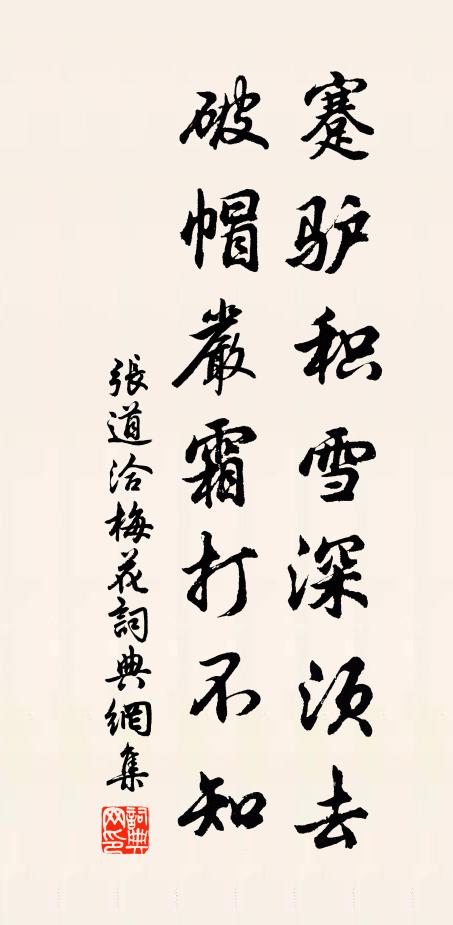 蹇驴积雪深须去
破帽嚴霜打不知
張道洽梅花詞典網集
詞典
网印